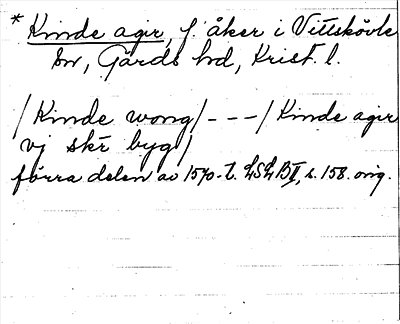 * Kinde agir, f. åker i Vittskövle
sn, Gärds hd, Krist. l.
/Kinde wong/ - - - / Kinde agir
vj skr byg /
förra delen av 1570-t. LSLB II, s. 158. orig.